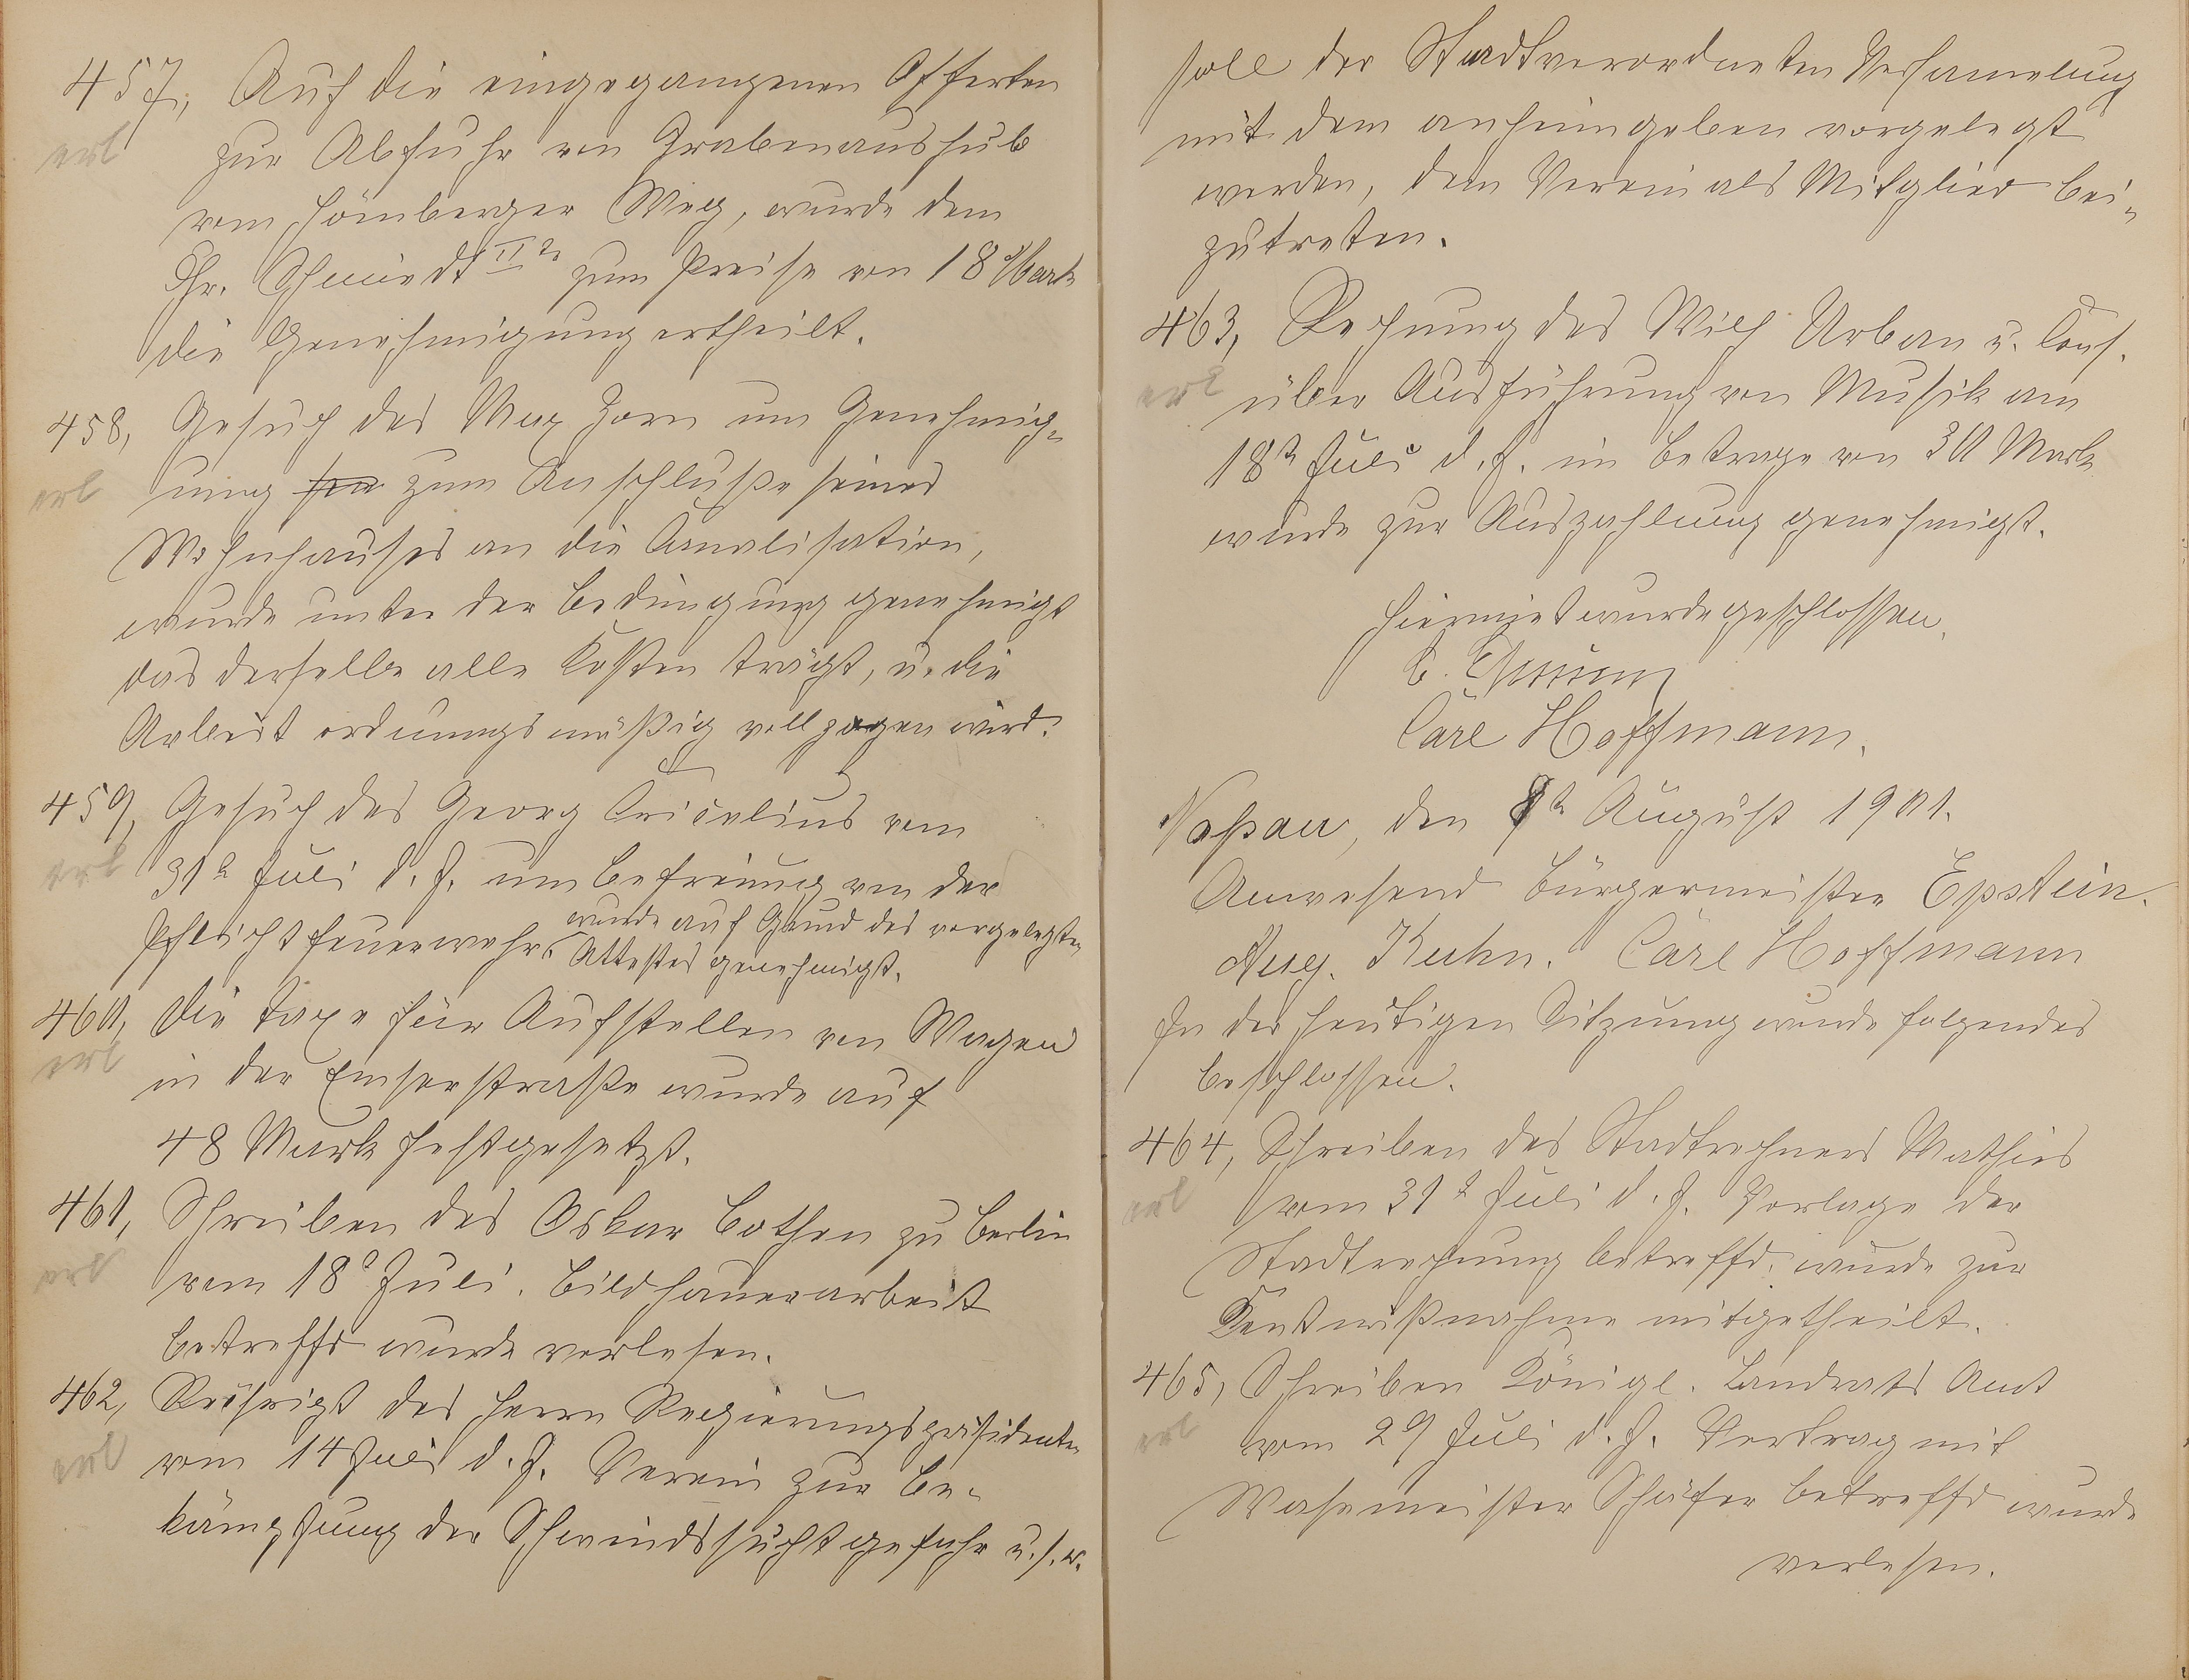 457, Auf die eingegangenen Offerten
erl
zur Abfuhr von Grabenaushub
vom Hömberger Weg, wurde dem
Chr. Schmidt II zum Preise von 18 Mark
die Genehmigung ertheilt.
458, Gesuch des Max Zorn um Genehmig-
erl
ung zum Anschluße seines
Wohnhauses an die Canalisation,
wurde unter der Bedingung genehmigt
das derselbe alle Kosten trägt, u. die
Arbeit ordnungsmäßig vollzogen wird.
459, Gesuch des Georg Tricelius vom
erl
31t Juli d. J. um Befreiung von der
Pflichtfeuerwehr wurde auf Grund des vorgelegten
Attestes genehmigt.
460, Die Taxe für Aufstellen von Wagen
erl
in der Emserstraße wurde auf
48 Mark festgesetzt.
461, Schreiben des Oskar Bothen zu Berlin
erl
vom 18t Juli. Bildhauerarbeit
betreffd wurde verlesen.
462, des Herrn Regierungspräsidenten
erl
vom 14 Juli d. J. Verein zur Be-
kämpfung der Schwindsuchtgefahr u. s. w.
soll der Stadtverordneten Versamelung
mit dem anheimgeben vorgelegt
werden, dem Verein als Mitglied bei-
zutreten.
463, Rechnung des Wilh Urban u. Cons.
erl
über Ausführung von Musik am
18t Juli d. J. im Betrage von 30 Mark
wurde zur Auszahlung genehmigt.
Hiermiet wurde geschlossen.
Carl Hoffmann.
Naßau, den 8t August 1901.
Anwesend Bürgermeister Epstein.
Aug. Kuhn. Carl Hoffmann
In der heutigen Sitzung wurde folgendes
beschlossen.
464, Schreiben des Stadtrechners Mathies
erl
vom 31t Juli d. J. Vorlage der
Stadtrechnung betreffd. wurde zur
Kentnißnahme mitgetheilt.
465, Schreiben Königl. Landrats Amt
erl
vom 29 Juli d. J. Vertrag mit
Wasemeister Schäfer betreffd wurde
verlesen.